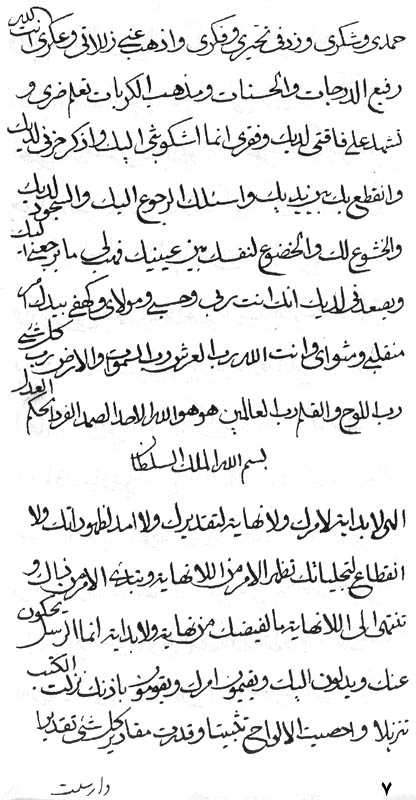 حمدی و شکری و زد فی تحیری و فکری و اذهب عنی زلاتی و عکری انت اللهم
رفیع الدرجات و الحسنات و مذهب الکربات تعلم ضری و
تشهد علی فاقتی لدیک و فقری انما اشکو بثی الیک و اذکر حزنی لدیک
و انقطع بک بین یدیک و اسئلک الرجوع الیک و السجود لدیک
و الخشوع لک و الخضوع لنفسک بین عینیک فهب لی ما یرجعنی الیک
و یصعدنی لدیک انک انت ربی و حسبی و مولای و کهفی بیدک امر
منقلبی و مثوای و انت الله رب العرش و رب السموات و الارض رب کل شیء
رب اللوح و القلم رب العالمین هو هو الله الاحد الصمد الفرد الحکم العدل
بسم الله الملک السلطان
الهی لا بدایة لامرک و لا نهایة لتقدیرک و لا امد لظهوراتک و لا
انقطاع لتجلیاتک تظهر الامر من اللانهایة و یتبدی الامر من و
تنتهی الی اللانهایة ما لفیضک من نهایة و لا بدایة انما الرسل یحکون
عنک و یدلون الیک و یقیمون امرک و یقومون باذنک نزلت الکتب
تنزیلا و احصیت الالواح تثبیتا و قدرت مقادیر کل شیء تقدیرا
۷